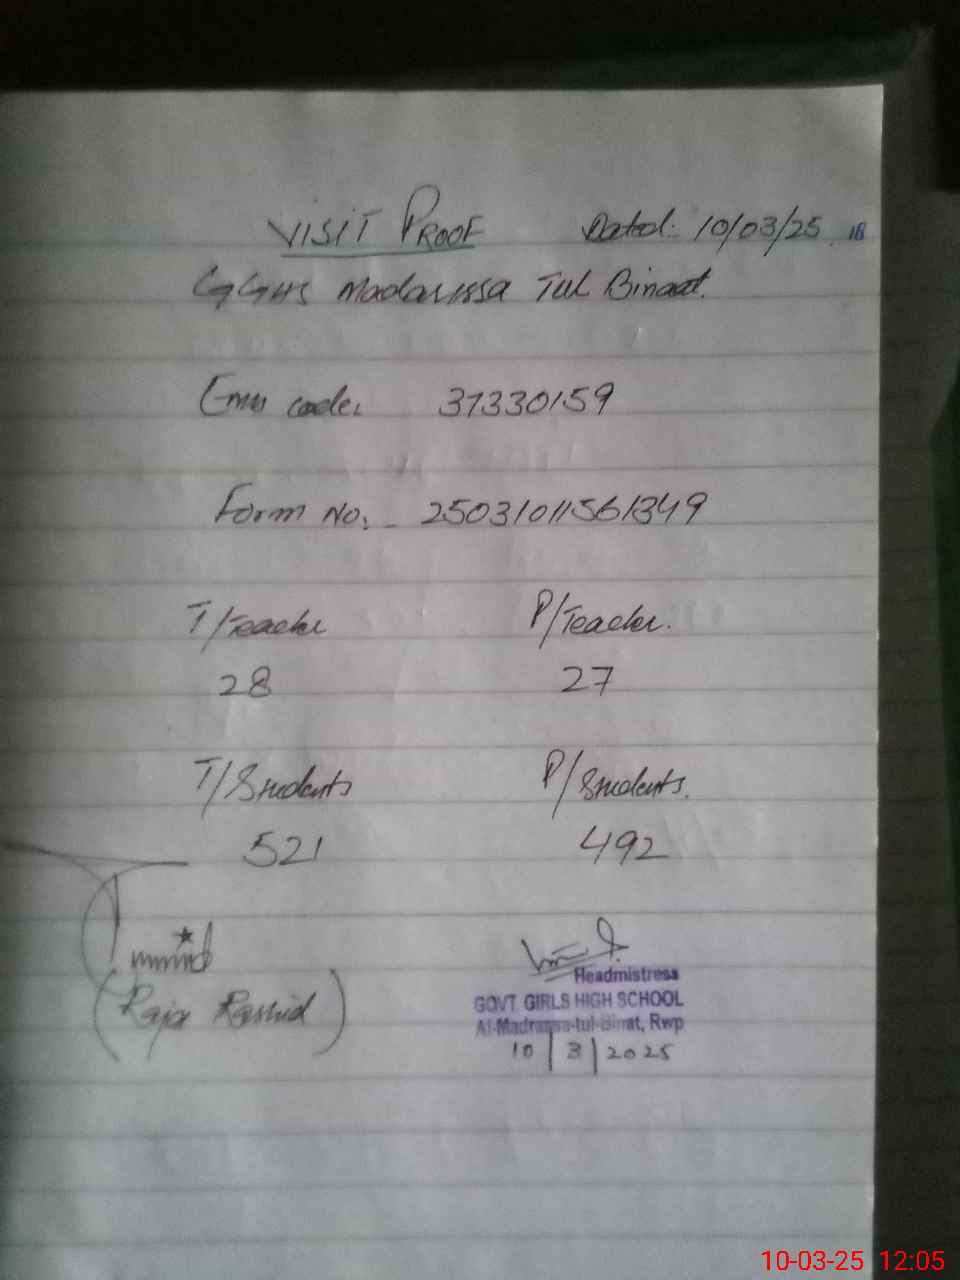 VISIT PROOF Dated: 10/03/25
GGHS Madarissa Tul Binaat.
Emis code: 37330159
Form No: - 25031011561349
T/Teacher P/Teacher.
28 27
T/Students P/Students.
521 492
Headmistress
(Raja Rashid) GOVT. GIRLS HIGH SCHOOL
Al-Madrassa-tul-Binat, Rwp
10/3/2025
10-03-25 12:05